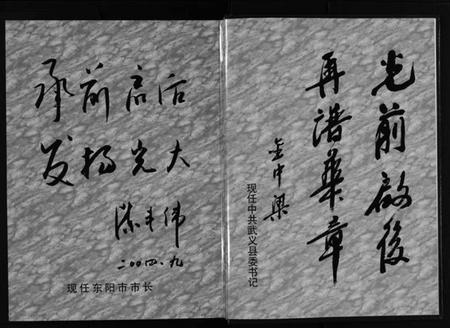 承前启后
发扬光大
陈丰伟
二〇〇四.九
现任东阳市市长
光前啟後
再谱華章
金中梁
现任中共武义县委书记